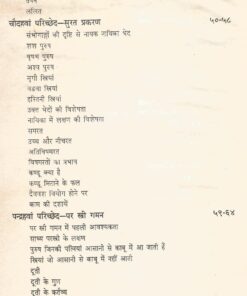 ललित
चौदहवां परिच्छेद—सुरत प्रकरण ५०-५८
संभोगार्हो की दृष्टि से नायक नायिका भेद
शश पुरुष
वृषभ पुरुष
अश्व पुरुष
मृगी स्त्रियां
बड़वा स्त्रियां
हस्तिनी स्त्रियां
उक्त भेदों की विशेषता
नायिका में लक्षण की विशेषता
समरत
उच्च और नीचरत
अतिविषमरत
विषमरतों का प्रभाव
कण्डू क्या है
कण्डू मिटाने के फल
दैववश वियोग होने पर
काम की दशायें
पन्द्रहवां परिच्छेद—पर स्त्री गमन ५९-६४
पर स्त्री गमन में पहली आवश्यकता
साध्य परस्त्री के लक्षण
पुरुष जिनकी पत्नियां आसानी से काबू में आ जाती हैं
स्त्रियां जो आसानी से काबू में नहीं आतीं
दूती
दूती के गुण
दूती के कर्तव्य